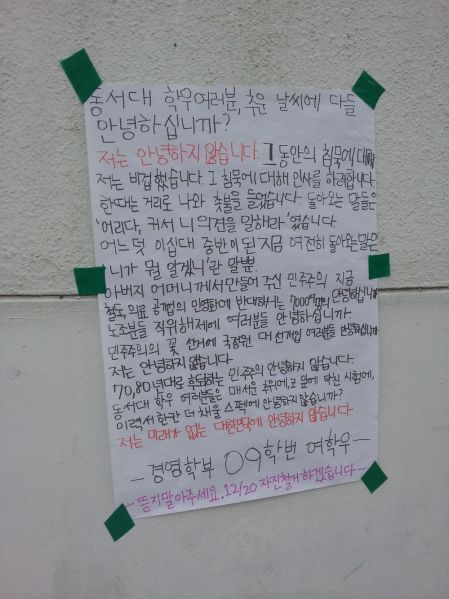 동서대 학우여러분, 추운 날씨에 다들
안녕하십니까?
저는 안녕하지 않습니다. 그 동안의 침묵에 대해
저는 비겁했습니다. 그 침묵에 대해 인사를 하려합니다.
한때는 거리로 나와 촛불을 들었습니다. 돌아오는 말들은
'어리다, 커서 니 의견을 말해라' 였습니다.
어느덧 이십대 중반이 된 지금 여전히 돌아오는 말은
'니가 뭘 알겠니' 란 말뿐.
아버지 어머니께서 만들어 주신 민주주의 지금
철도, 의료 공기업의 민영화에 반대하는 7000여명의 안녕하십니까
노조분들 직위해제에 여러분들 안녕하십니까
민주주의의 꽃 선거에 국정원 대선개입 여러분들 안녕하십니까
저는 안녕하지 않습니다.
70, 80년대로 후퇴하는 민주주의 안녕하지 않습니다.
동서대 학우 여러분들은 매서운 추위에, 코 앞에 닥친 시험에,
이력서 한칸 더 채울 스펙에 안녕하지 않습니까?
저는 미래가 없는 대한민국에 안녕하지 않습니다
- 경영학부 09학번 여학우 -
- 뜯지말아주세요. 12/20 자진철거 하겠습니다 -